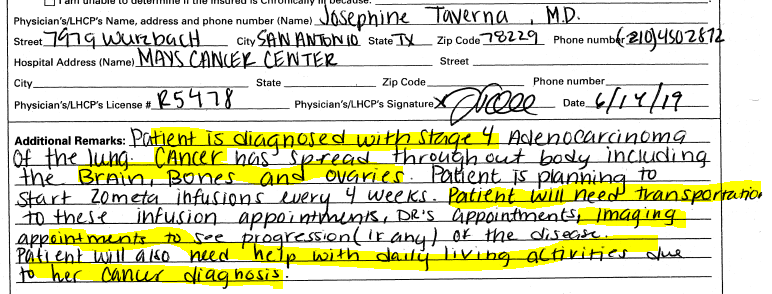 I am unable to determine if the insured is Chronically Ill because:
Physician's/LHCP's Name, address and phone number (Name) Josephine Taverna, M.D.
Street 7979 Wurzbach City SAN ANTONIO State TX Zip Code 78229 Phone number (210)4502872
Hospital Address (Name) MAYS CANCER CENTER Street
City State Zip Code Phone number
Physician's/LHCP's License # R5478 Physician's/LHCP's Signature X Date 6/14/19
Additional Remarks: Patient is diagnosed with stage 4 Adenocarcinoma
Of the lung. Cancer has spread throughout body including
the Brain, Bones and ovaries. Patient is planning to
start Zometa infusions every 4 weeks. Patient will need transportation
to these infusion appointments, DR's appointments, imaging
appointments to see progression (if any) of the disease.
Patient will also need help with daily living activities due
to her cancer diagnosis.